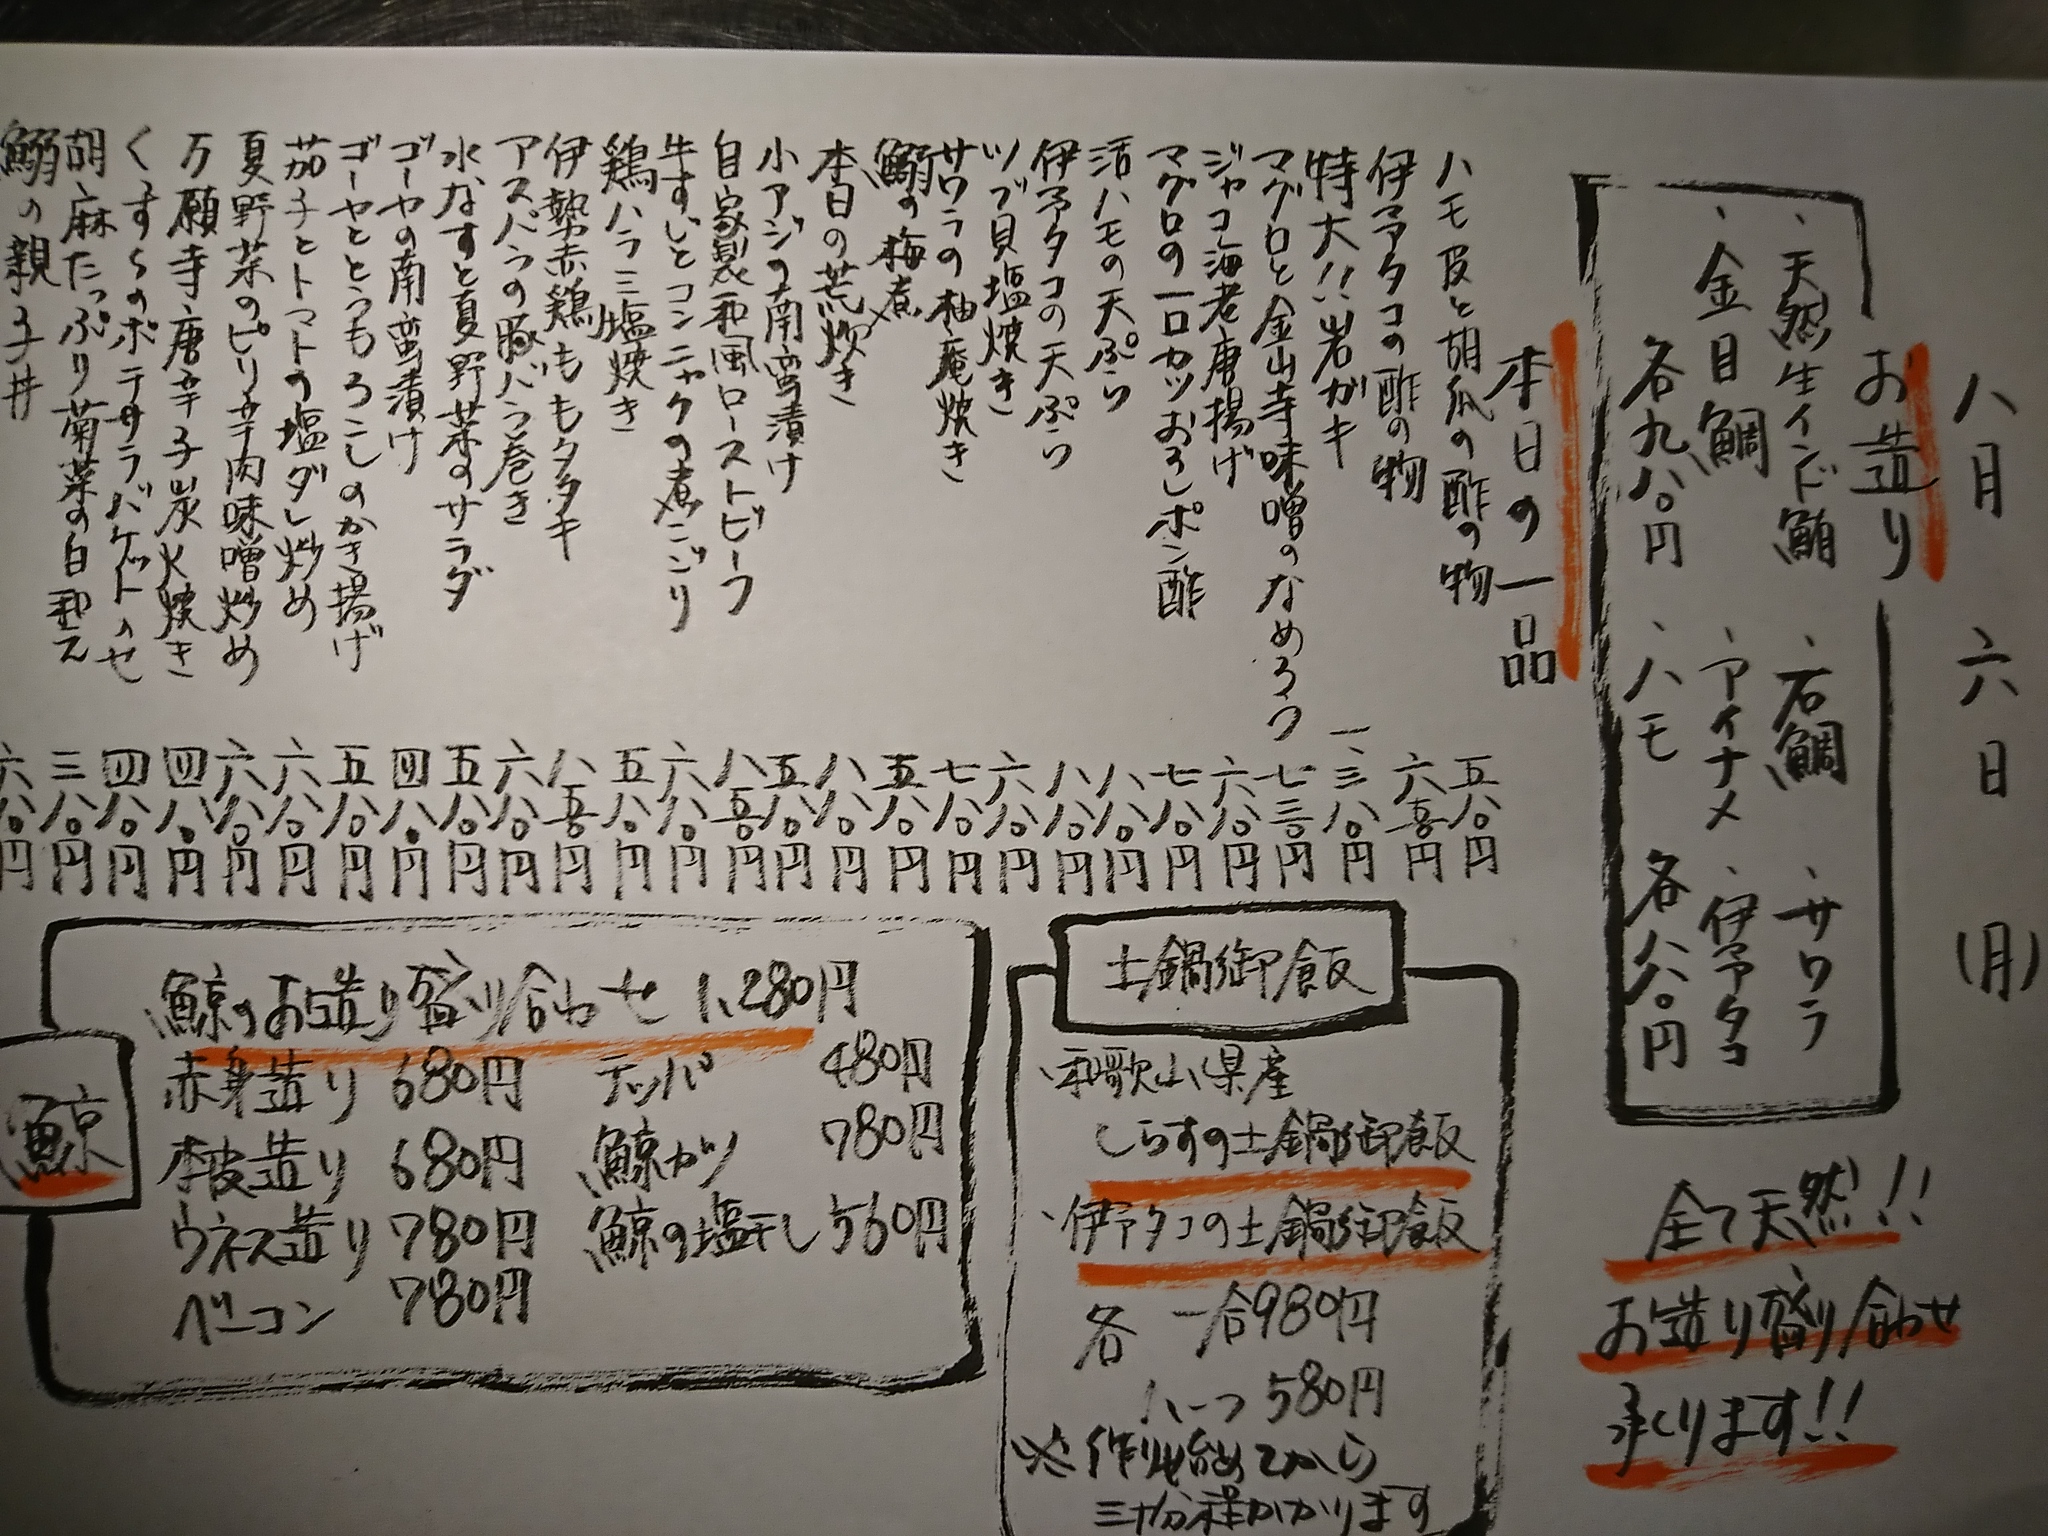 八月 六日 (月)
お造り
、天然生インド鮪 、石鯛 、サワラ
、金目鯛 、アイナメ 、伊予タコ
各九八〇円 、ハモ 各八八〇円
全て天然!!
お造り盛り合わせ
承ります!!
本日の一品
ハモ皮と胡瓜の酢の物 五八〇円
伊予タコの酢の物 六五〇円
特大!!岩ガキ 一、三八〇円
マグロと金山寺味噌のなめろう 七三〇円
ジャコ海老唐揚げ 六八〇円
マグロの一口カツおろしポン酢 七八〇円
活ハモの天ぷら 八八〇円
伊予タコの天ぷら 八八〇円
ツブ貝塩焼き 六八〇円
サワラの柚庵焼き 七八〇円
鰯の梅煮 五八〇円
本日の荒炊き 八八〇円
小アジの南蛮漬け 五八〇円
自家製和風ローストビーフ 八五〇円
牛すじとコンニャクの煮こごり 六八〇円
鶏ハラミ塩焼き 五八〇円
伊勢赤鶏ももタタキ 八五〇円
アスパラの豚バラ巻き 六八〇円
水なすと夏野菜のサラダ 五八〇円
ゴーヤの南蛮漬け 四八〇円
ゴーヤととうもろこしのかき揚げ 五八〇円
茄子とトマトの塩ダレ炒め 六八〇円
夏野菜のピリ辛肉味噌炒め 六八〇円
万願寺唐辛子炭火焼き 四八〇円
くずしのポテサラバケットのせ 四八〇円
胡麻たっぷり菊菜の白和え 三八〇円
鰯の親子丼 六八〇円
土鍋御飯
、和歌山県産
しらすの土鍋御飯
、伊予タコの土鍋御飯
各 一合980円
ハーフ 580円
※作り始めてから
三十分程かかります
鯨
鯨のお造り盛り合わせ 1,280円
赤身造り 680円 テッパ 480円
本皮造り 680円 鯨カツ 780円
ウネス造り 780円 鯨の塩干し 560円
ベーコン 780円